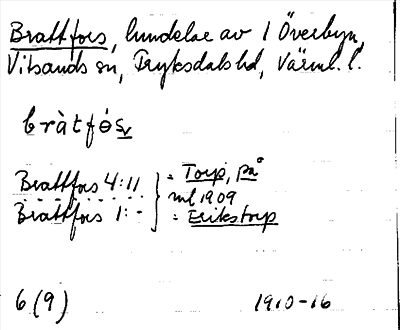 Brattfors, hundelar av 1 Överbyn,
Vitsands sn, Fryksdals hd, Värml. l.
bràtfós
Brattfors 4:11 } = Torp, på
ml 1909
Brattfors 1:- = Erikstorp
6 (9) 1910-16